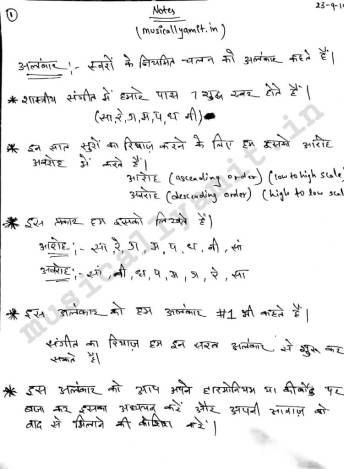 ① Notes 23-9-1
(musicallyamit.in)
अलंकार :- स्वरों के नियमित चलन को अलंकार कहते हैं।
* शास्त्रीय संगीत में हमारे पास 7 शुद्ध स्वर होते हैं।
(सा, रे, ग, म, प, ध, नी)
* इन सात सुरों का रियाज़ करने के लिए हम इसको आरोह
अवरोह में करते हैं।
आरोह (ascending order) (low to high scale)
अवरोह (descending order) (high to low scal
* इस प्रकार हम इसको लिखते हैं।
आरोह :- सा रे ग म, प, ध, नी, सां
अवरोह :- सां नी, ध, प, म, ग, रे, सा
* इस अलंकार को हम अलंकार #1 भी कहते हैं।
संगीत का रियाज़ हम इन सरल अलंकार से शुरू कर
सकते हैं।
* इस अलंकार को आप अपने हारमोनियम या कीबोर्ड पर
बजा कर इसका अभ्यास करें और अपनी आवाज़ को
से मिलाने की कोशिश करें।
musicallyamit.in